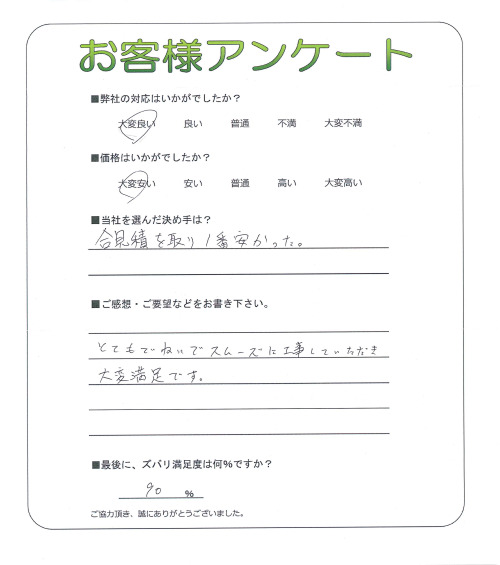 お客様アンケート
■弊社の対応はいかがでしたか？
大変良い 良い 普通 不満 大変不満
■価格はいかがでしたか？
大変安い 安い 普通 高い 大変高い
■当社を選んだ決め手は？
合見積を取り1番安かった。
■ご感想・ご要望などをお書き下さい。
とてもていねいでスムーズに工事していただき
大変満足です。
■最後に、ズバリ満足度は何％ですか？
90 ％
ご協力頂き、誠にありがとうございました。